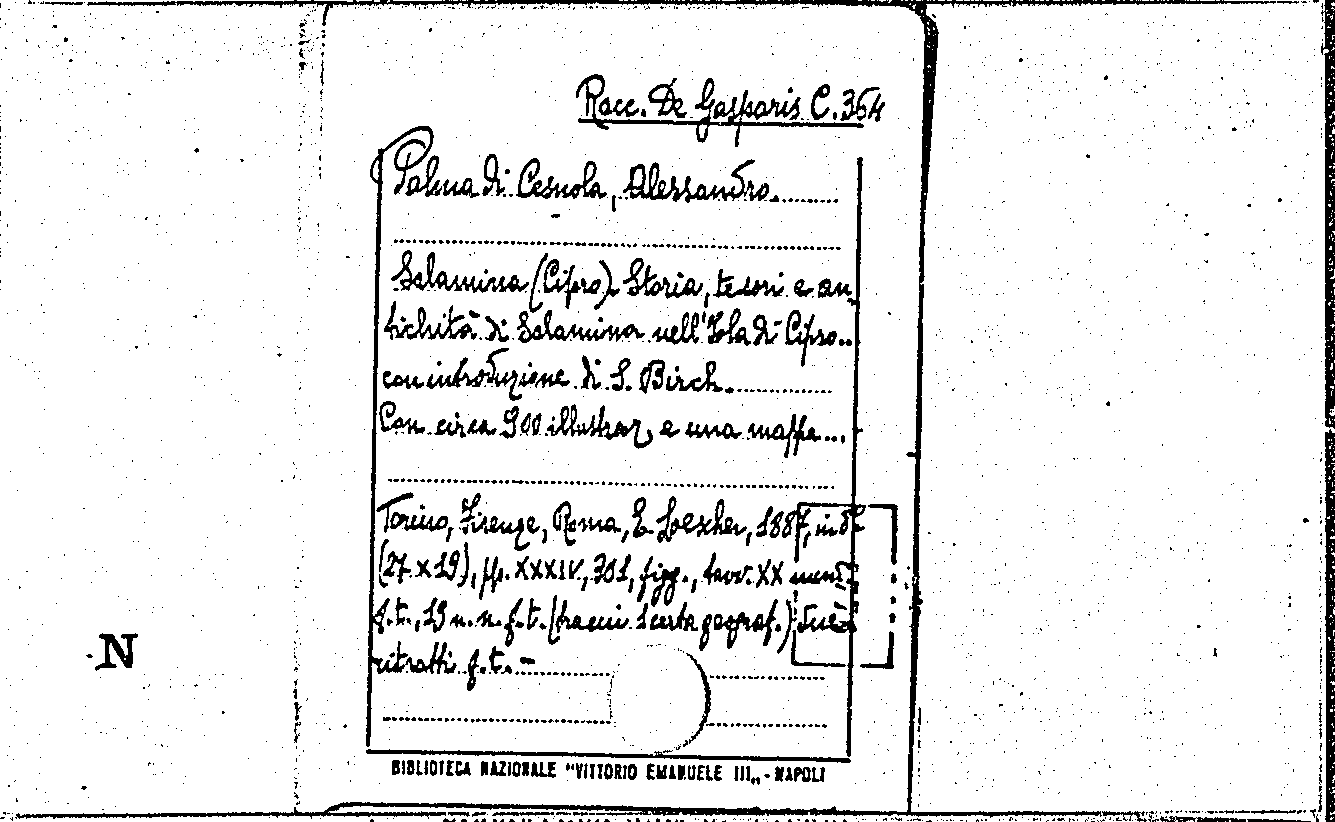 Racc. De Gasparis C. 364
Palma di Cesnola, Alessandro.
Salamina (Cipro). Storia, tesori e an-
tichità di Salamina nell'Isola di Cipro..
con introduzione di S. Birch.
Con circa 900 illustraz. e una mappa...
Torino, Firenze, Roma, E. Loescher, 1887, in 8°
(27 x 19), pp. XXXIV, 301, figg., tavv. XX
f.t., 19 n.n. f.t. (tra cui 1 carta geograf.) due
ritratti f.t. -
N
BIBLIOTECA NAZIONALE "VITTORIO EMANUELE III„ - NAPOLI